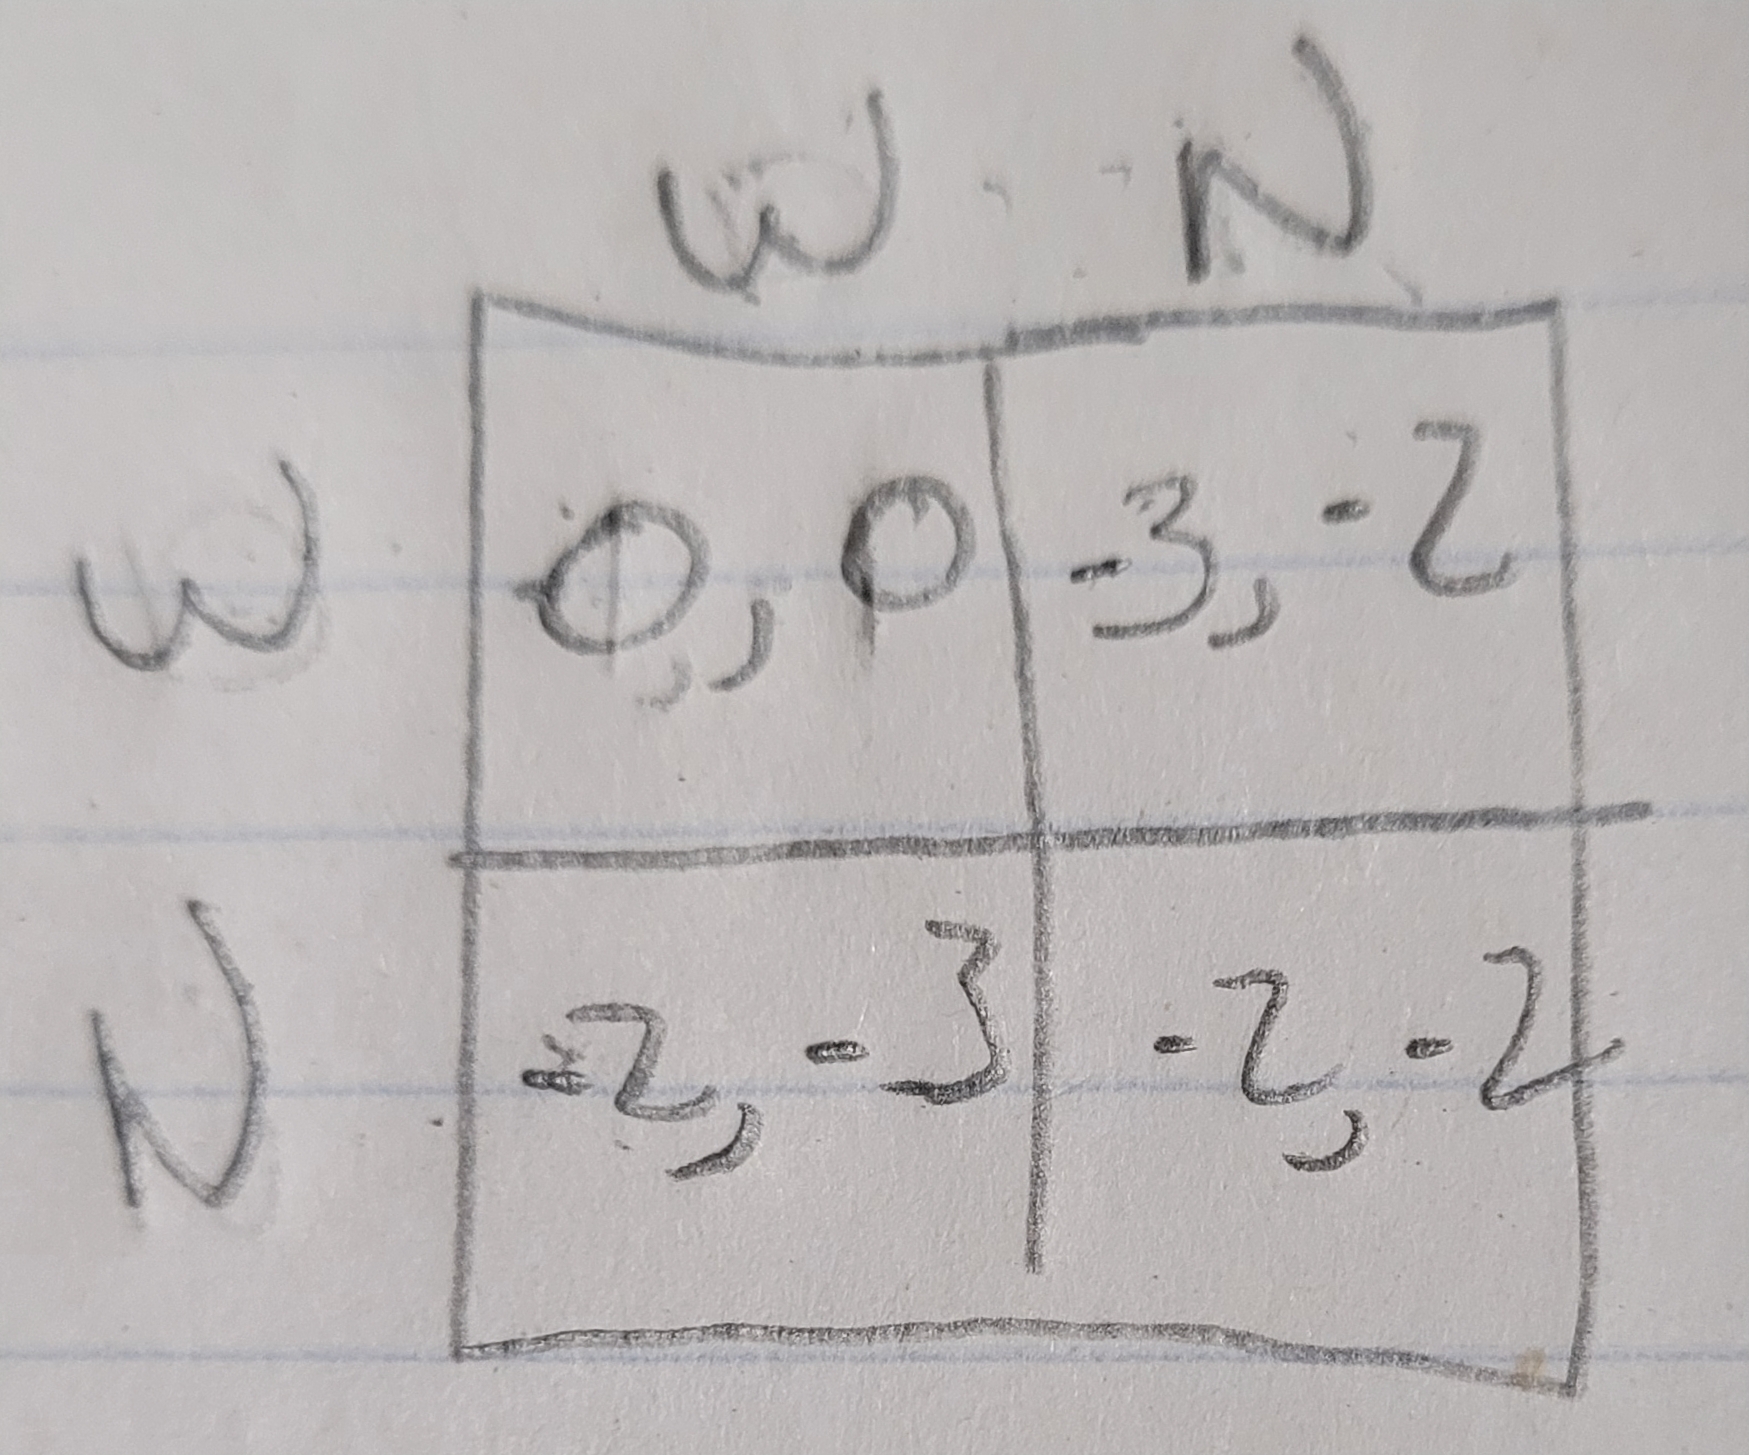 W N
W 0, 0 -3, -2
N -2, -3 -2, -2